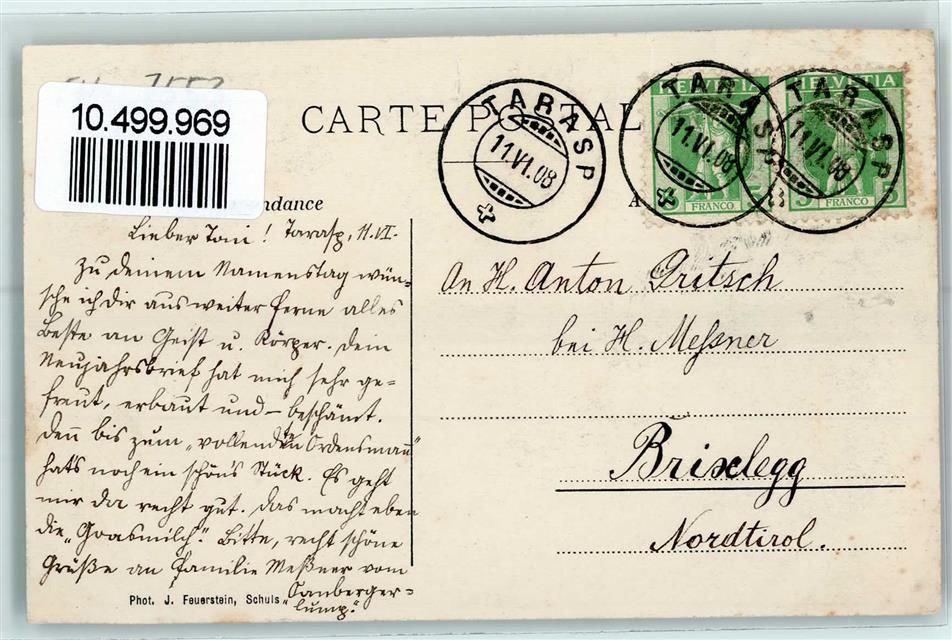 10.499.969
CARTE POSTAL
ndance
A
TARASP
11.VI.08
TARASP
11.VI.08
FRANCO
5
HELVETIA
TARASP
11.VI.08
FRANCO
5
Lieber Toni! Tarasp, 11.VI.
Zu deinem Namenstag wün-
sche ich Dir aus weiter Ferne alles
Beste an Geist u. Körper. Dein
Neujahrsbrief hat mich sehr ge-
freut, erbaut und – beschämt.
Denn bis zum „vollendeten Ordensmann"
hat's noch ein schön's Stück. Es geht
mir da recht gut. Das macht eben
die „Goasmilch". Bitte, recht schöne
Grüße an Familie Meßner vom
lump".
Phot. J. Feuerstein, Schuls
An H. Anton Gritsch
bei H. Meßner
Brixlegg
Nordtirol.